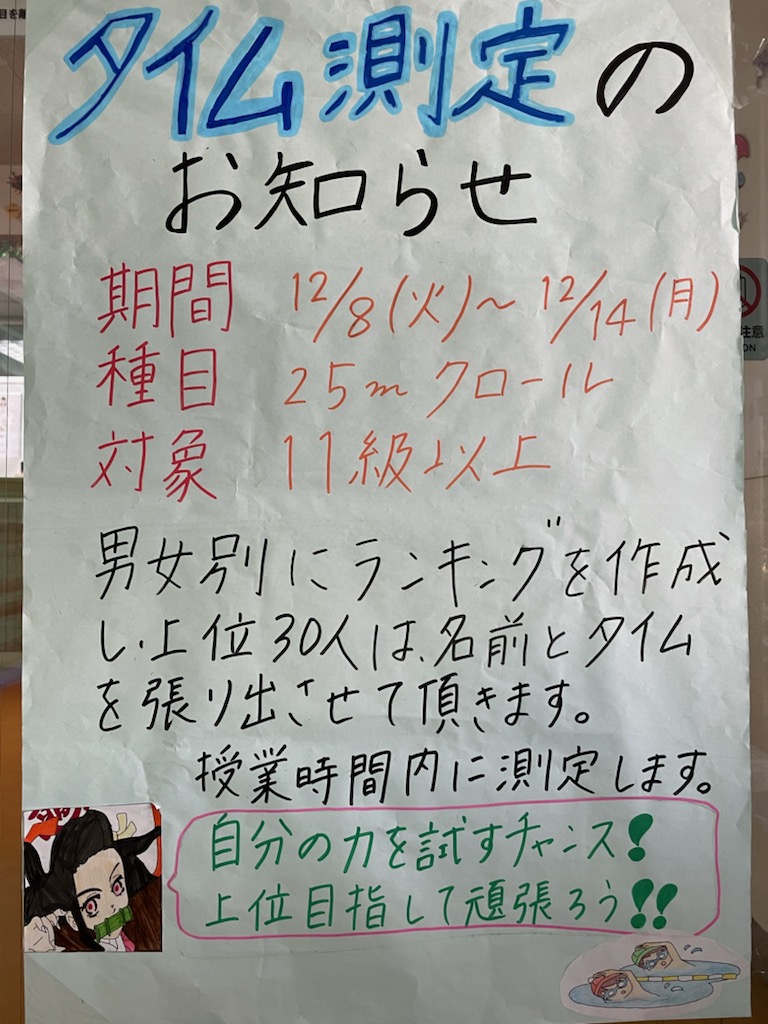 タイム測定の
お知らせ
期間 12/8(火)～12/14(月)
種目 25mクロール
対象 11級以上
男女別にランキングを作成
し、上位30人は、名前とタイム
を張り出させて頂きます。
授業時間内に測定します。
自分の力を試すチャンス!
上位目指して頑張ろう!!
注意